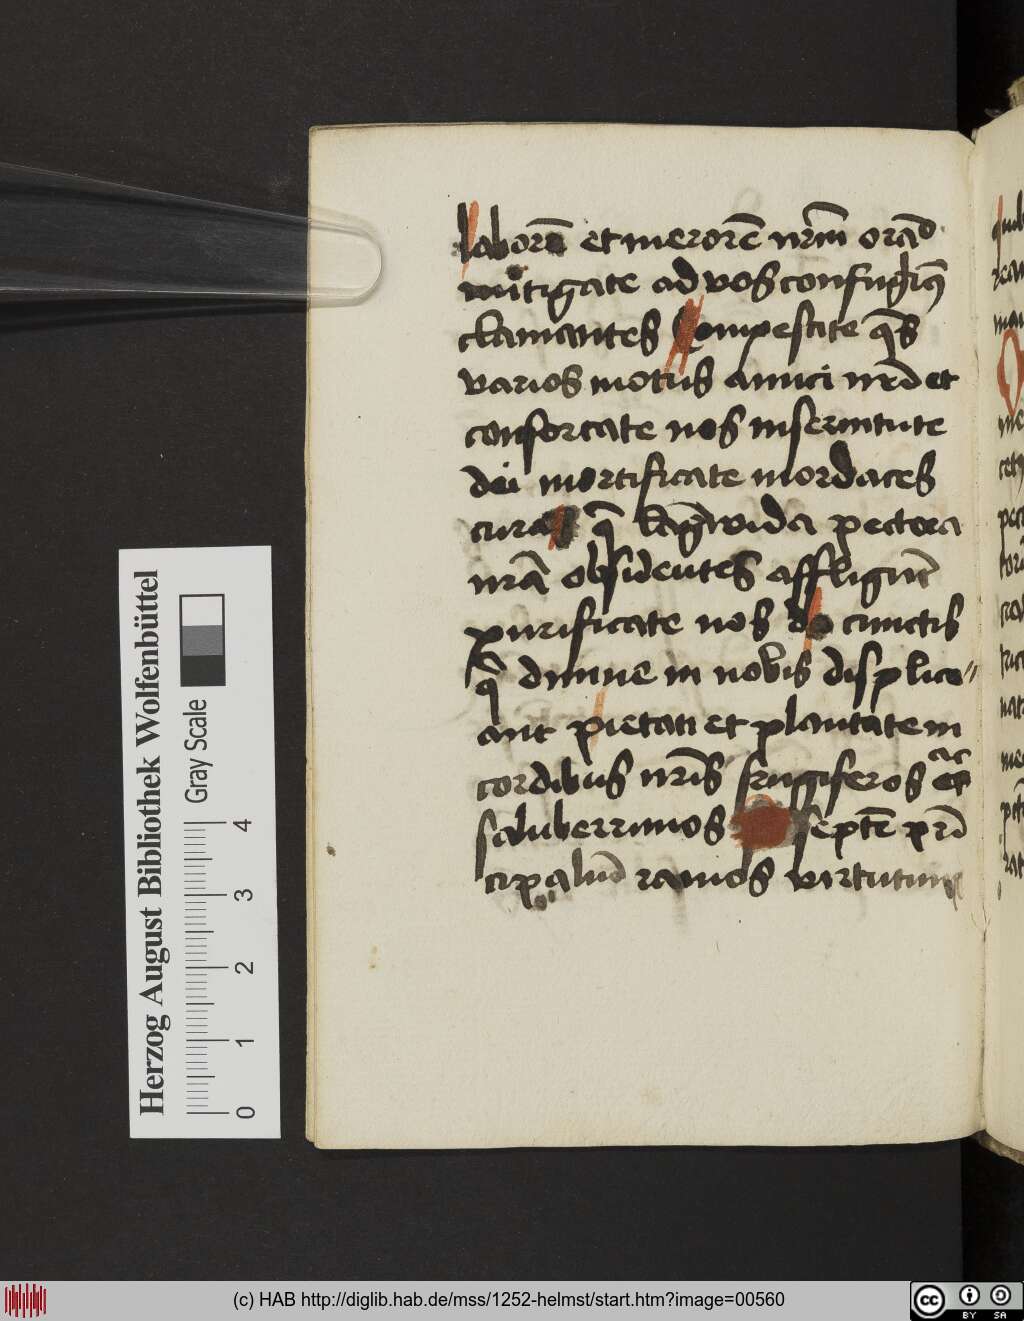 laborē et merorē nr̄m orādo
mitigate ad vos confugim9
clamantes Compescite qs̄
varios motus animi nr̄i et
confortate nos in servitute
dei mortificate mordaces
curas q̄ languida pectora
nrā obsidentes affligūt
purificate nos de cunctis
q̄ divine in nobis displice〃
ant pietati et plantate in
cordibus nr̄is frugiferos ac
saluberrimos septē pri̅
cipaliū ramos virtutum
Herzog August Bibliothek Wolfenbüttel
Gray Scale
0 1 2 3 4
(c) HAB http://diglib.hab.de/mss/1252-helmst/start.htm?image=00560
cc BY SA